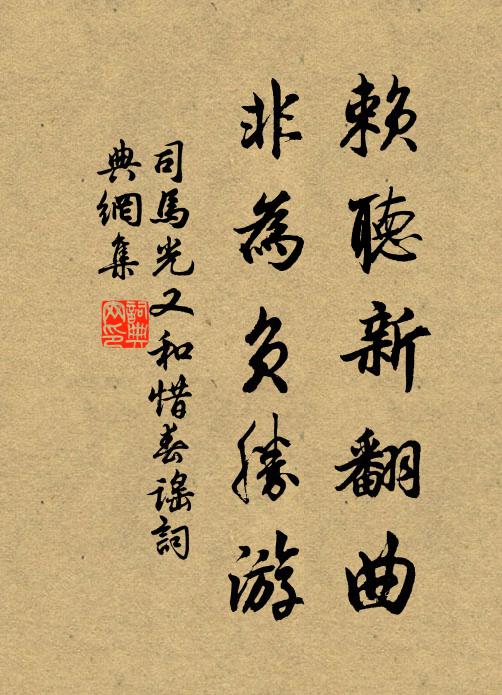 賴聽新翻曲
非為負勝游
司馬光又和惜春謠詞
典網集
詞典
网印